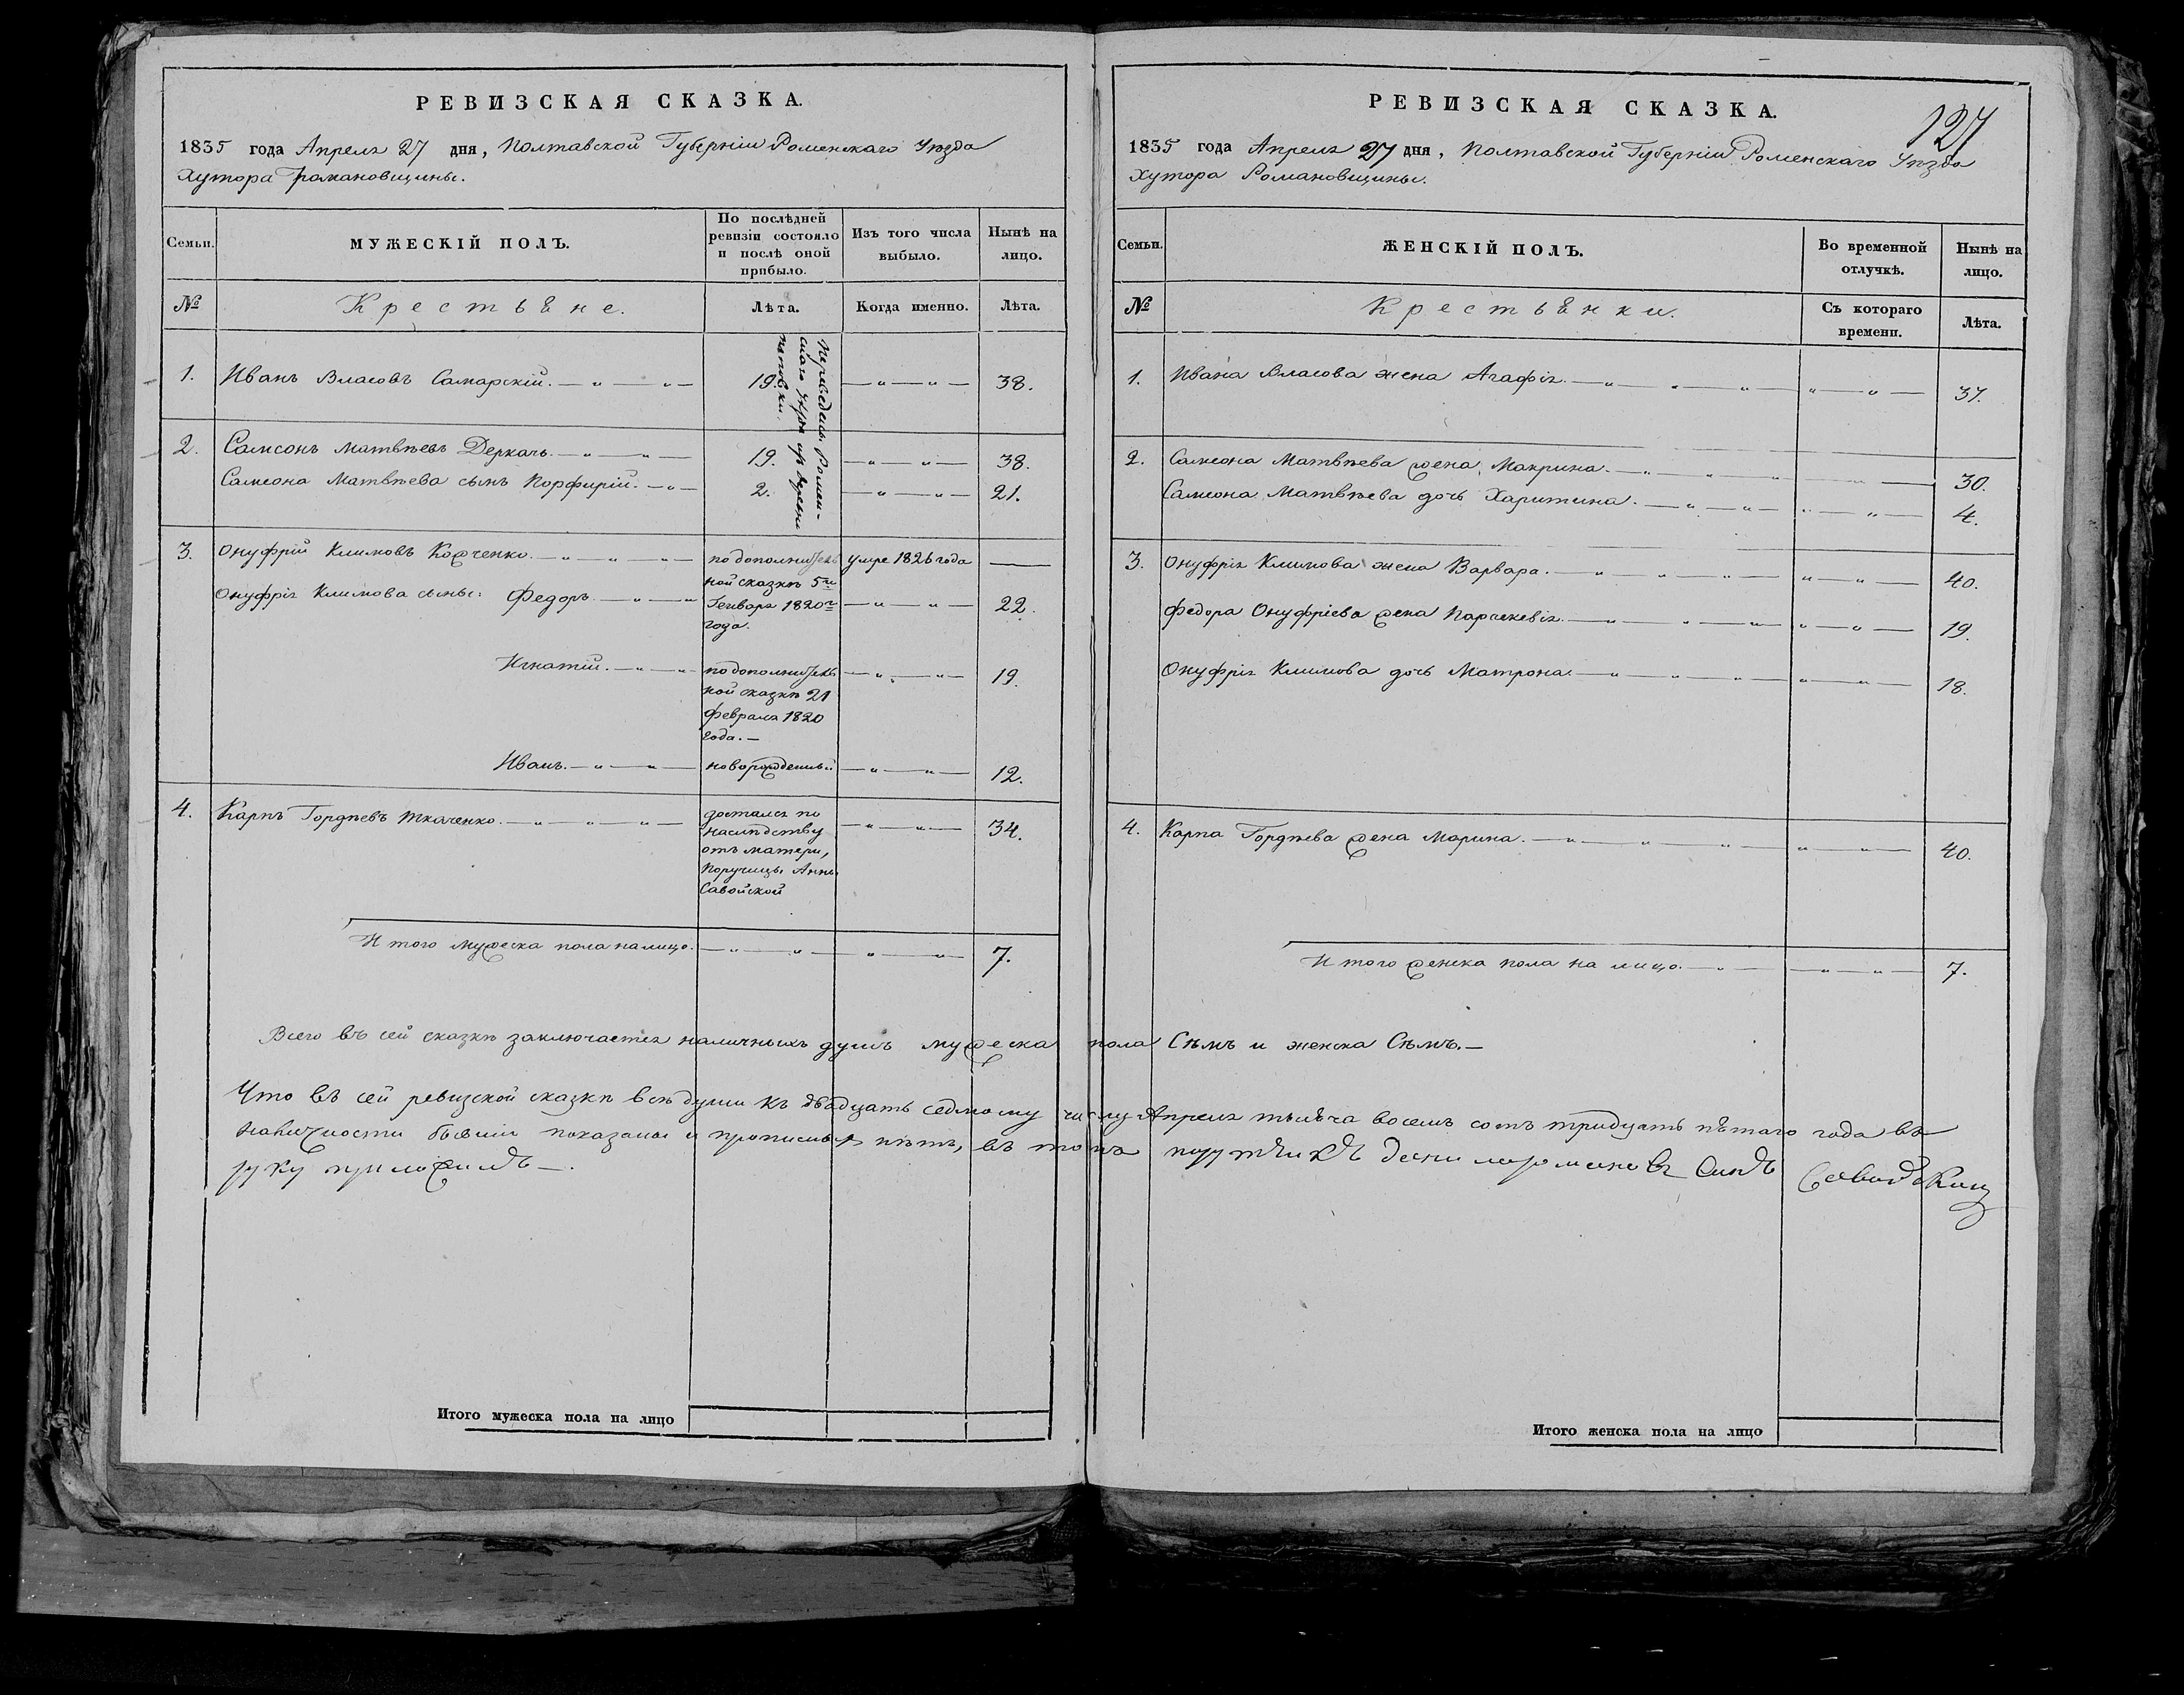 РЕВИЗСКАЯ СКАЗКА.
1835 года Апреля 27 дня, Полтавской Губерніи Роменскаго Уѣзда
Хутора Романовщины.
Семьи.
МУЖЕСКІЙ ПОЛЪ.
По послѣдней
ревизіи состояло
и послѣ оной
прибыло.
Изъ того числа
выбыло.
Нынѣ на
лицо.
№
Крестьяне.
Лѣта.
Когда именно.
Лѣта.
Переведены Ромен-
скаго уѣзда изъ
1. Иванъ Власовъ Самарскій. — „ — „ — 19. — „ — „ — 38.
2. Самсонъ Матвѣевъ Деркачъ. — „ — „ — 19. — „ — „ — 38.
Самсона Матвѣева сынъ Порфирій. — „ — 2. — „ — „ — 21.
3. Онуфрій Климовъ Кожченко. — „ — „ — „ — по дополнитель умре 1826 года —
ной сказкѣ 5го
Онуфрія Климова сыны: Федоръ — „ — „ Генваря 1820го — „ — „ — 22.
года.
Игнатій. — „ — „ по дополнитель — „ — „ — 19.
ной сказкѣ 21
февраля 1820
года. —
Иванъ. — „ — „ — новорожденный — „ — „ — 12.
4. Карпъ Гордѣевъ Ткаченко. — „ — „ — „ — достался по — „ — „ — 34.
наслѣдству
отъ матери,
Поручицы Анны
Савойской
Итого мужеска пола на лицо. — „ — „ — „ — „ — 7.
Всего въ сей сказкѣ заключается наличныхъ душъ мужеска пола Сѣмъ и женска Сѣмъ. —
Что въ сей ревизской сказкѣ всѣ души къ двадцать седмому числу Апреля тысяча восемь сотъ тридцать пятаго года въ
наличности бывшіи показаны и прописныхъ нѣтъ, въ томъ Савойскій
руку приложилъ —.
Итого мужеска пола на лицо
РЕВИЗСКАЯ СКАЗКА.
127
1835 года Апреля 27 дня, Полтавской Губерніи Роменскаго Уѣзда
Хутора Романовщины.
Семьи.
ЖЕНСКІЙ ПОЛЪ.
Во временной
отлучкѣ.
Нынѣ на
лицо.
№
Крестьянки.
Съ котораго
времени.
Лѣта.
1. Ивана Власова жена Агафія. — „ — „ — „ — „ — „ — 37.
2. Самсона Матвѣева жена Макрина. — „ — „ — „ — 30.
Самсона Матвѣева дочь Харитина. — „ — „ — „ — „ — 4.
3. Онуфрія Климова жена Варвара. — „ — „ — „ — „ — „ — 40.
Федора Онуфріева жена Парскевія. — „ — „ — „ — „ — 19.
Онуфрія Климова дочь Матрона. — „ — „ — „ — „ — „ — 18.
4. Карпа Гордѣева жена Марина. — „ — „ — „ — „ — „ — 40.
Итого женска пола на лицо. — „ — „ — „ — 7.
Итого женска пола на лицо